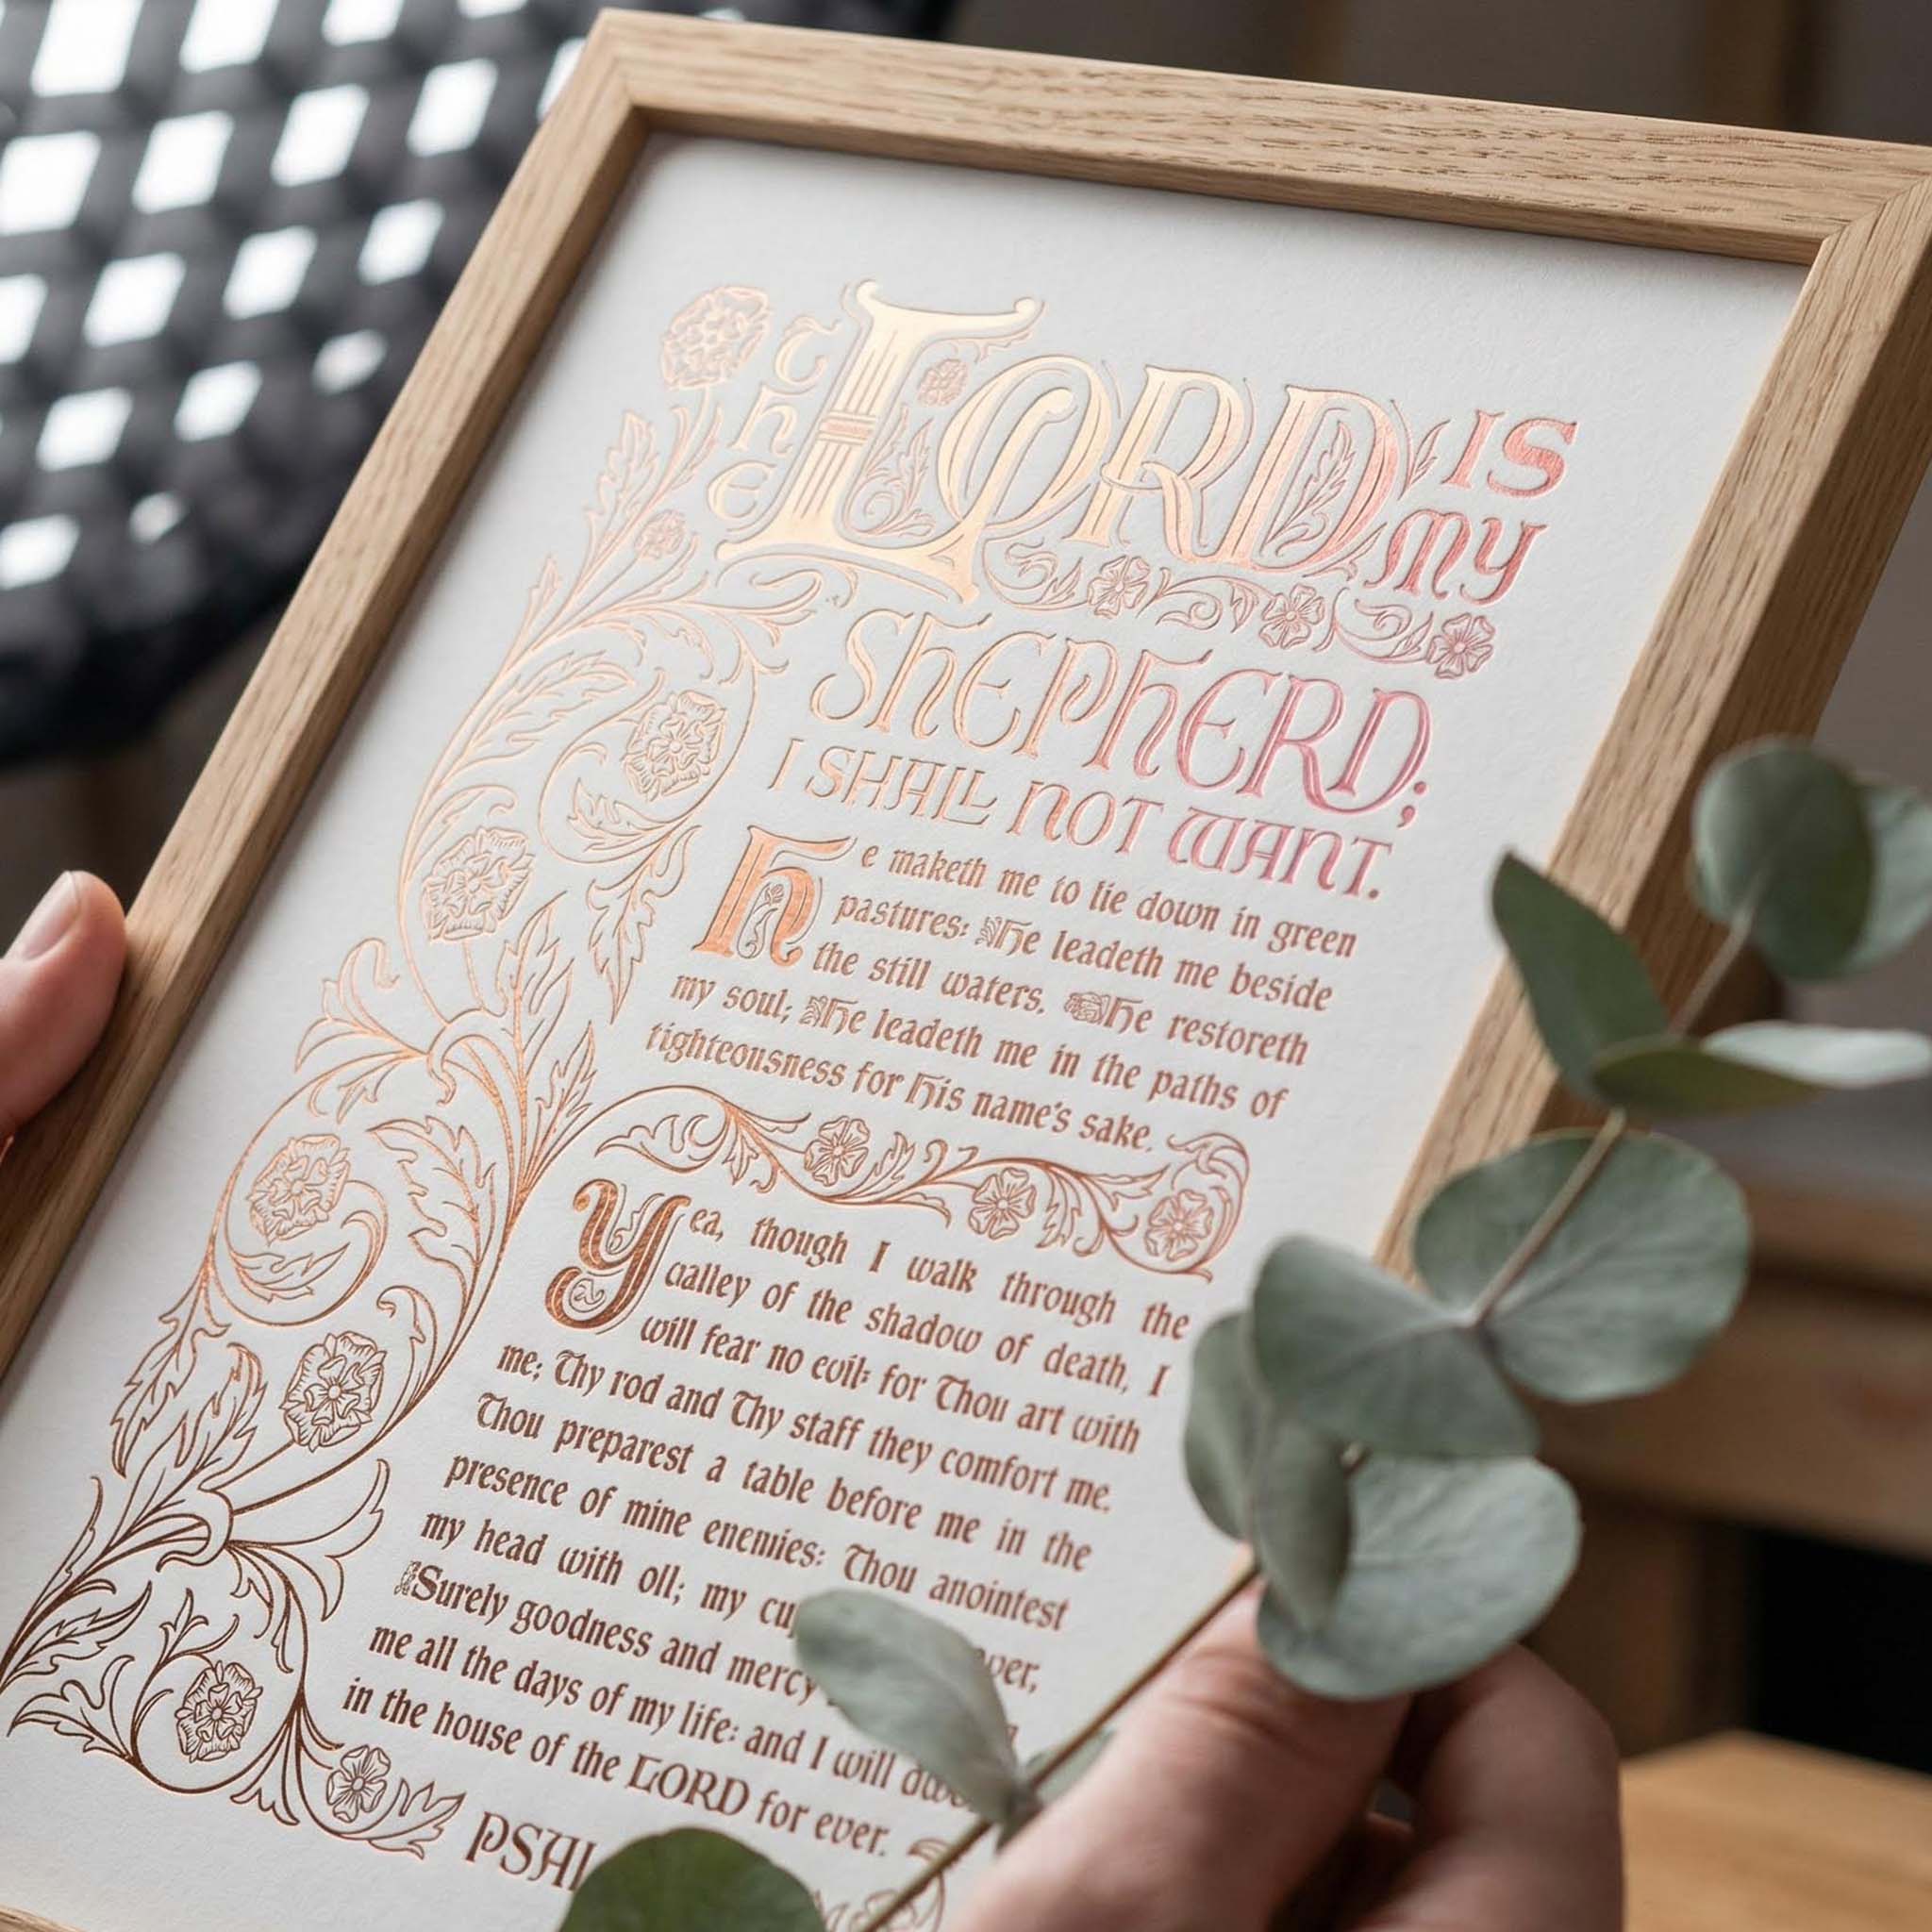 The LORD IS
MY
SHEPHERD;
I SHALL NOT WANT.
He maketh me to lie down in green
pastures: He leadeth me beside
the still waters. He restoreth
my soul; He leadeth me in the paths of
righteousness for His name's sake.
Yea, though I walk through the
valley of the shadow of death, I
will fear no evil: for Thou art with
me; Thy rod and Thy staff they comfort me.
Thou preparest a table before me in the
presence of mine enemies: Thou anointest
my head with oil; my
Surely goodness and mercy
me all the days of my life: and I will
in the house of the LORD for ever.